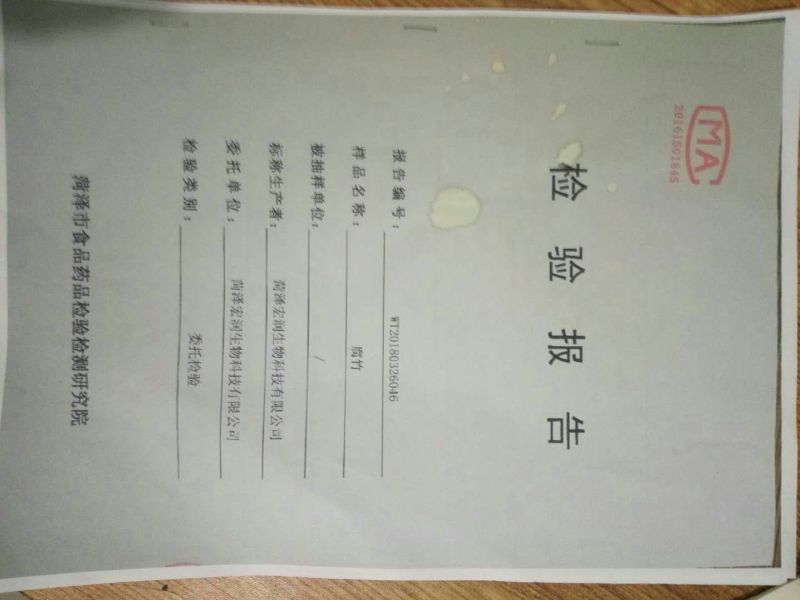 MA
2016150164S
检验报告
报告编号：WT20180326046
样品名称：腐竹
被抽样单位：/
标称生产者：菏泽宏润生物科技有限公司
委托单位：菏泽宏润生物科技有限公司
检验类别：委托检验
菏泽市食品药品检验检测研究院